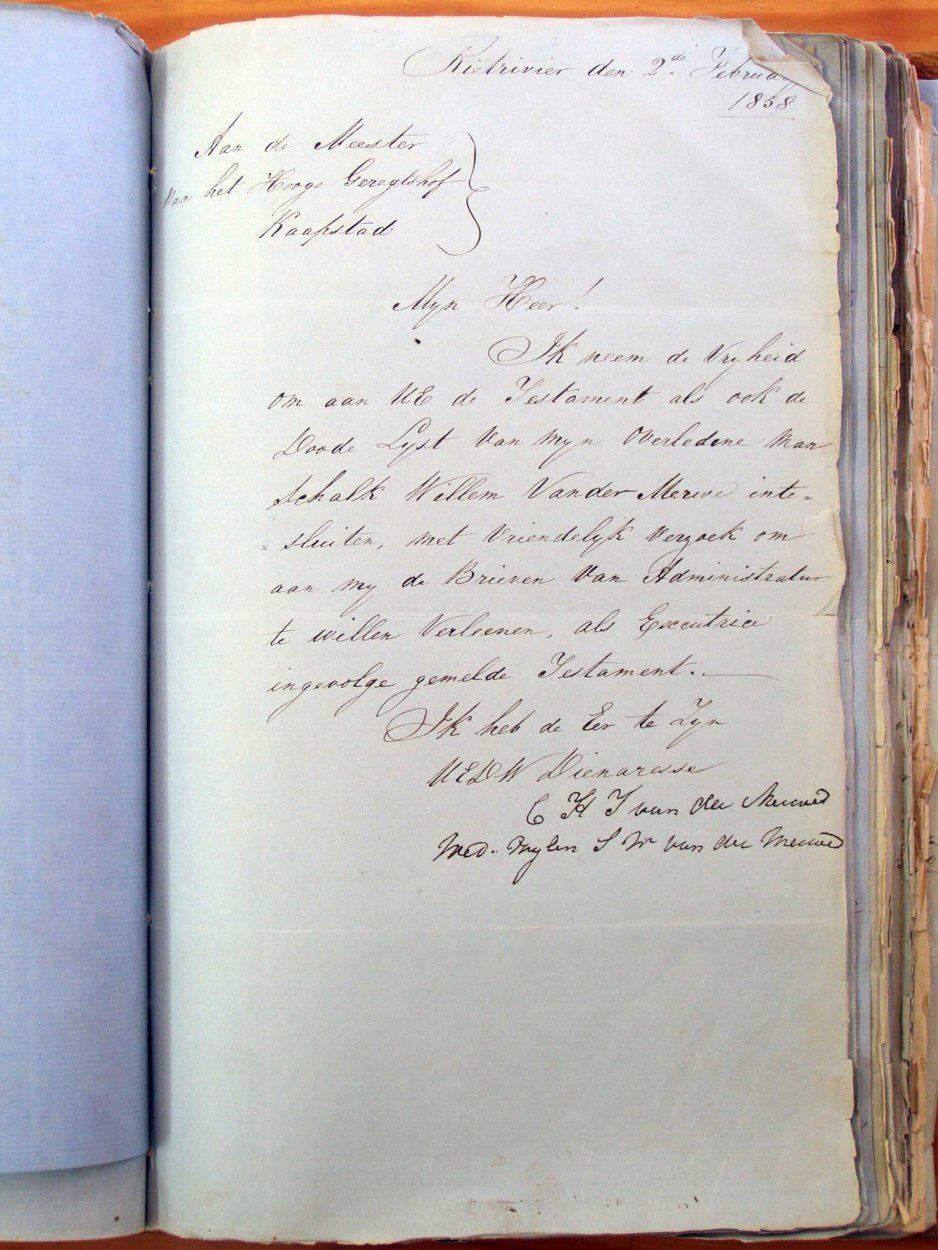 Rietrivier den 2de Februar
1858
Aan de Meester
Van het Hooge Geregtshof
Kaapstad
Myn Heer!
Ik neem de Vryheid
om aan UE de Testament als ook de
Doode Lyst Van myn Overledene Man
Schalk Willem Van der Merwe inte=
=sluiten, met Vriendelyk Verzoek om
aan my de Brieven Van Administratur
te willen Verleenen, als Executrice
ingevolge gemelde Testament.
Ik heb de Eer te Zyn
UEDW Dienaresse
C H J van der Merwe
Wed. Wylen S W van der Merwe